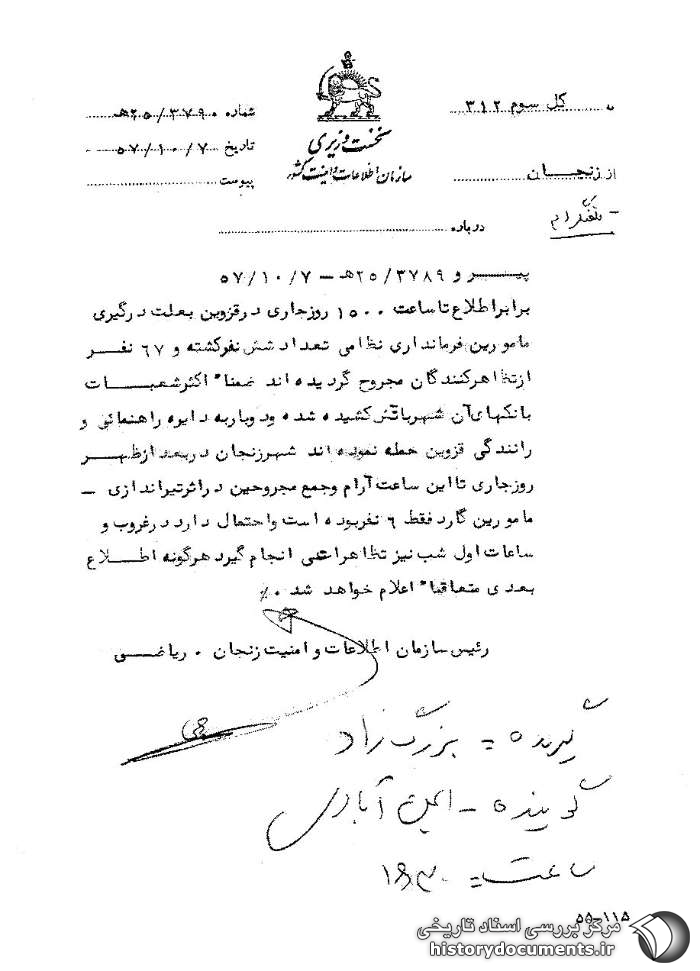 به کل سوم ۳۱۲
از زنجان
نخست وزیری
سازمان اطلاعات و امنیت کشور
شماره ۲۵/۳۷۹۰هـ
تاریخ ۵۷/۱۰/۷
پیوست
تلگرام
درباره
پیرو ۲۵/۳۷۸۹هـ – ۵۷/۱۰/۷
برابر اطلاع تا ساعت ۱۵۰۰ روزجاری در قزوین بعلت درگیری
مامورین فرمانداری نظامی تعداد شش نفرکشته و ۶۷ نفر
ازتظاهرکنندگان مجروح گردیده اند ضمنا" اکثرشعبات
بانکهای آن شهرباتش کشیده شده ودوباربه دایره راهنمائی و
رانندگی قزوین حمله نموده اند شهرزنجان دربعد ازظهر
روزجاری تا این ساعت آرام وجمع مجروحین دراثرتیراندازی –
مامورین گارد فقط ۶ نفربوده است واحتمال دارد درغروب و
ساعات اول شب نیز تظاهراتی انجام گیرد هرگونه اطلاع
بعدی متعاقبا" اعلام خواهد شد ٪.
رئیس سازمان اطلاعات و امنیت زنجان . ریاضی
گیرنده = بزرگ زاد
گوینده – امین آبادی
ساعت =
۵۵-۱۱۵
مرکز بررسی اسناد تاریخی
historydocuments.ir